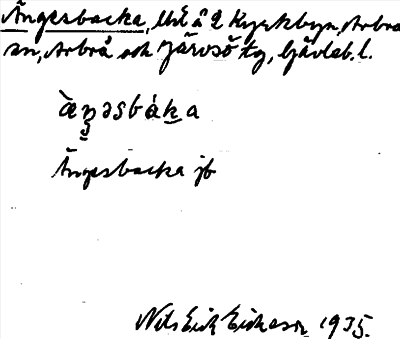 Ängesbacka, Uhl å 2 Kyrkbyn, Arbrå
sn, Arbrå och Järvsö tg, Gävleb. l.
Ängesbacka jb
Nils Erik Erikson 1935.